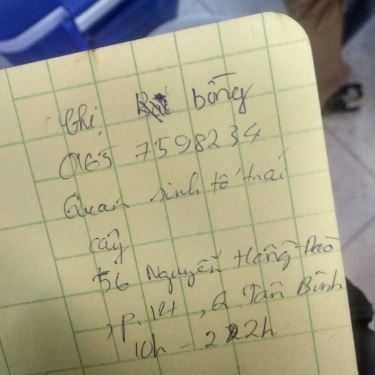 Chị bông
0165 7598234
Quán sinh tố trái
cây
56 Nguyễn Hồng Đào
, P. 14, Q Tân Bình
10h - 22h